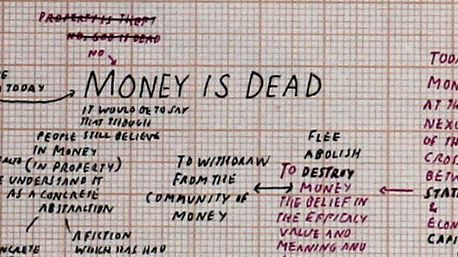 PROPERTY IS THEFT
NO, GOD IS DEAD
NO
TODAY
MONEY IS DEAD
IT WOULD BE TO SAY
THAT THOUGH
PEOPLE STILL BELIEVE
IN MONEY
(IN PROPERTY)
UNDERSTAND IT
AS A CONCRETE
ABSTRACTION
A FICTION
WHICH HAS HAD
TO WITHDRAW
FROM THE
COMMUNITY OF
MONEY
FLEE
ABOLISH
TO DESTROY
MONEY
THE BELIEF IN
THE EFFICACY
VALUE AND
MEANING AND
TODA
MON
AT TH
NEXU
OF TH
CROS
BETW
STAT
&
ECON
CAPI